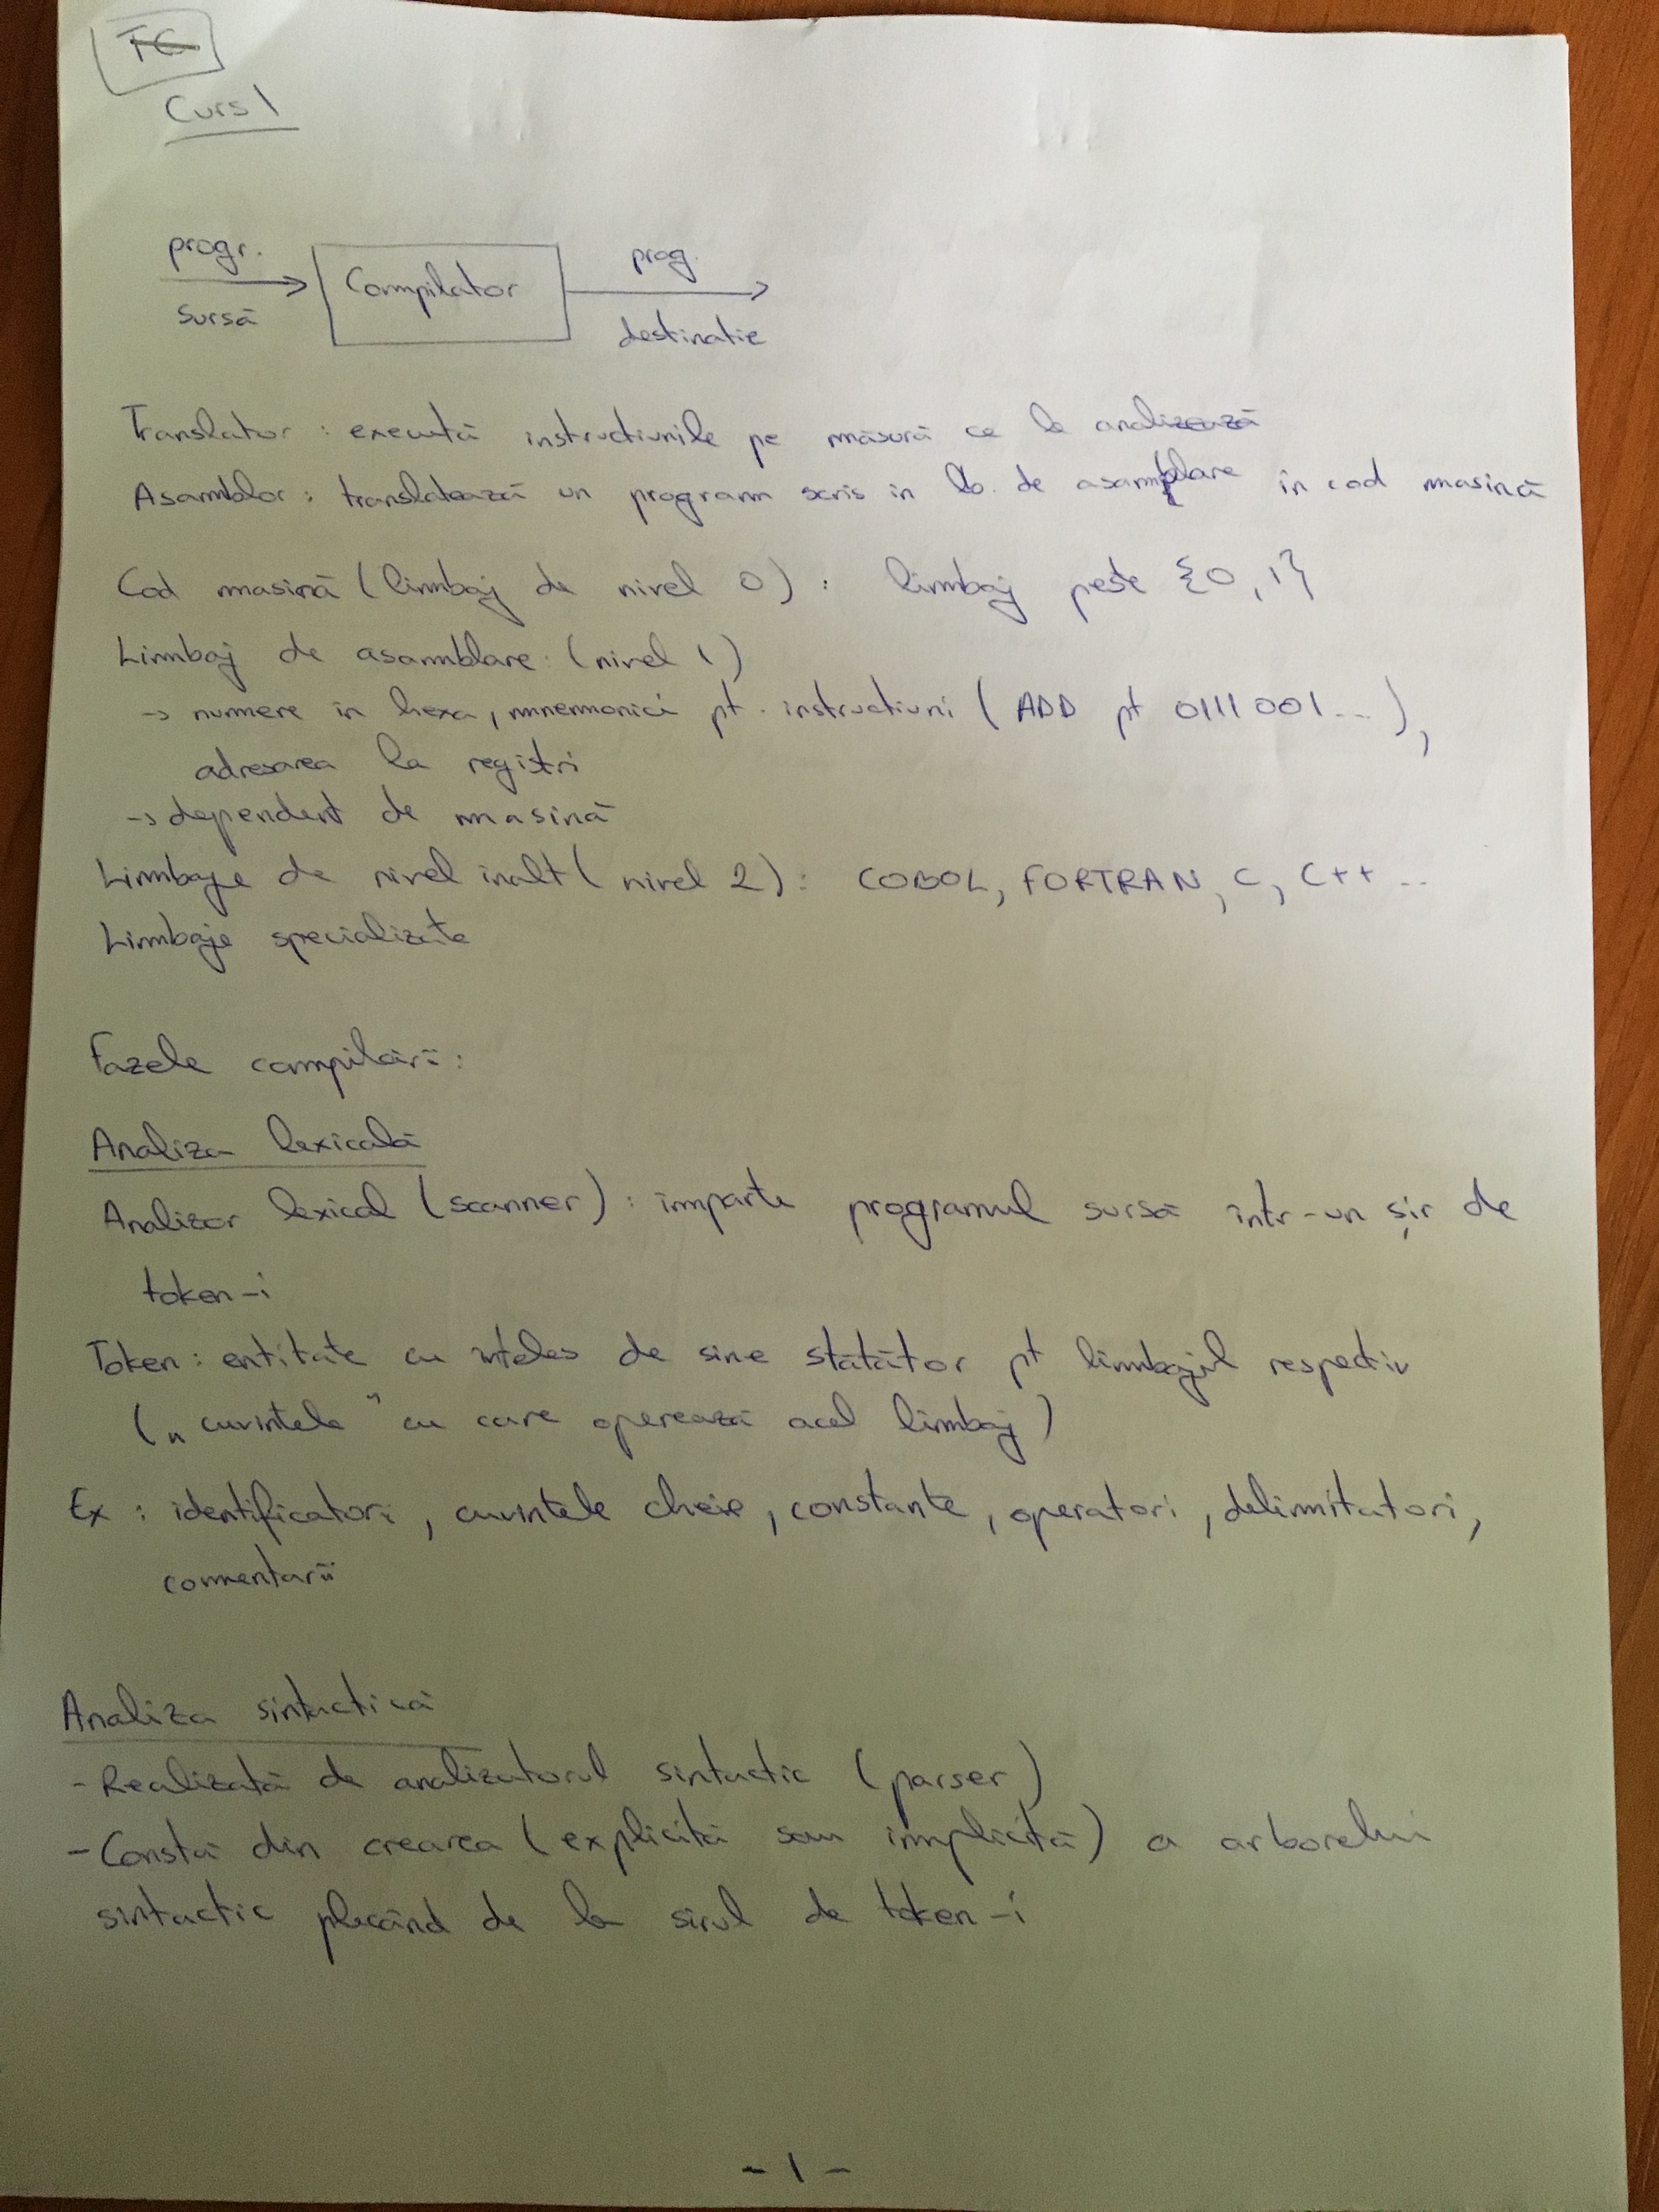 TC
Curs 1
progr.
sursă
Compilator
prog.
destinatie
Translator : execută instructiunile pe măsură ce le analizează
Asamblor : translatează un program scris in lb. de asamblare in cod masină
Cod masină (limbaj de nivel 0) : limbaj peste {0, 1}
Limbaj de asamblare : (nivel 1)
→ numere in hexa, mnemonici pt. instructiuni (ADD pt 0111001...),
adresarea la registri
→ dependent de masină
Limbaje de nivel inalt (nivel 2) : COBOL, FORTRAN, C, C++ ..
Limbaje specializate
Fazele compilării :
Analiza lexicală
Analizor lexical (scanner) : imparte programul sursă intr-un șir de
token-i
Token : entitate cu inteles de sine stătător pt limbajul respectiv
(„cuvintele" cu care operează acel limbaj)
Ex : identificatori, cuvintele cheie, constante, operatori, delimitatori,
comentarii
Analiza sintactică
- Realizată de analizatorul sintactic (parser)
- Constă din crearea (explicită sau implicită) a arborelui
sintactic plecând de la sirul de token-i
- 1 -